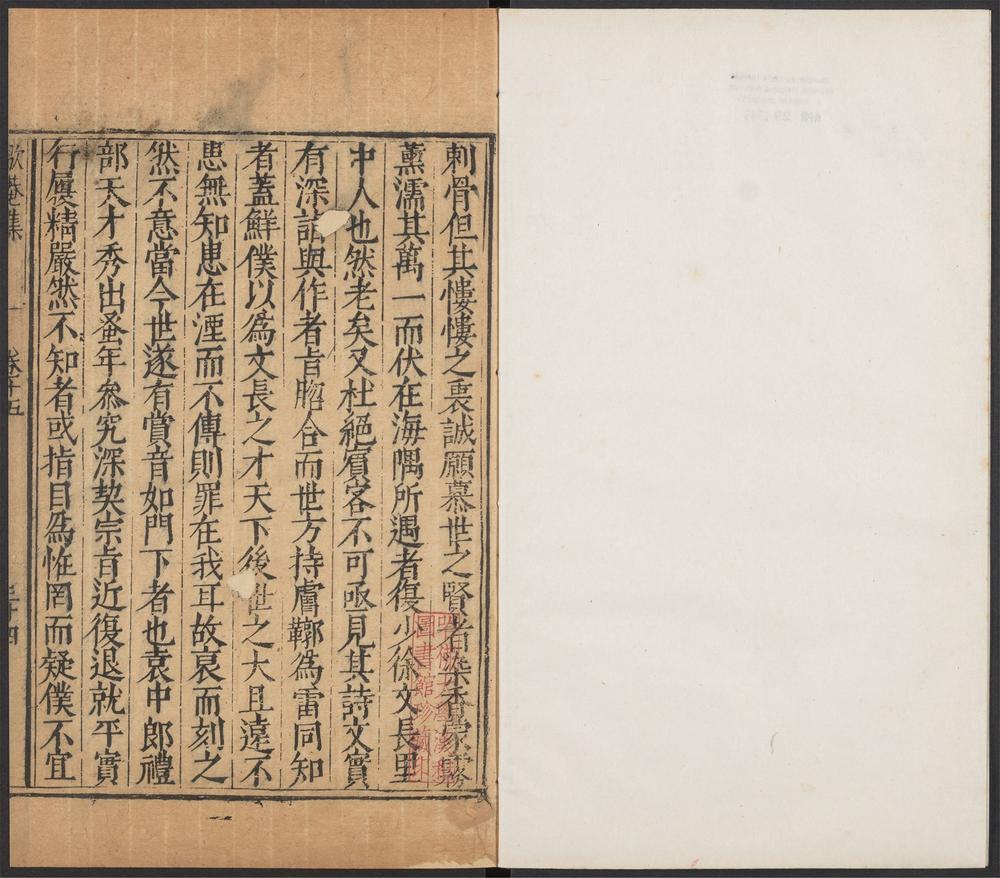 刺骨但其慺慺之衷誠願慕世之賢者染香蒙霧
薰濡其萬一而伏在海隅所遇者復少徐文長里
中人也然老矣又杜絕賔客不可亟見其詩文實
有深詣與作者㫖脗合而世方持膚鞹為雷同知
者蓋鮮僕以為文長之才天下後世之大且遠不
患無知患在湮而不傳則罪在我耳故裒而刻之
然不意當今世遂有賞音如門下者也袁中郎禮
部天才秀出蚤年叅究深契宗㫖近復退就平實
行履精嚴然不知者或指目為恠罔而疑僕不宜
歇菴集
卷十五
三十四
圖書館珍藏印